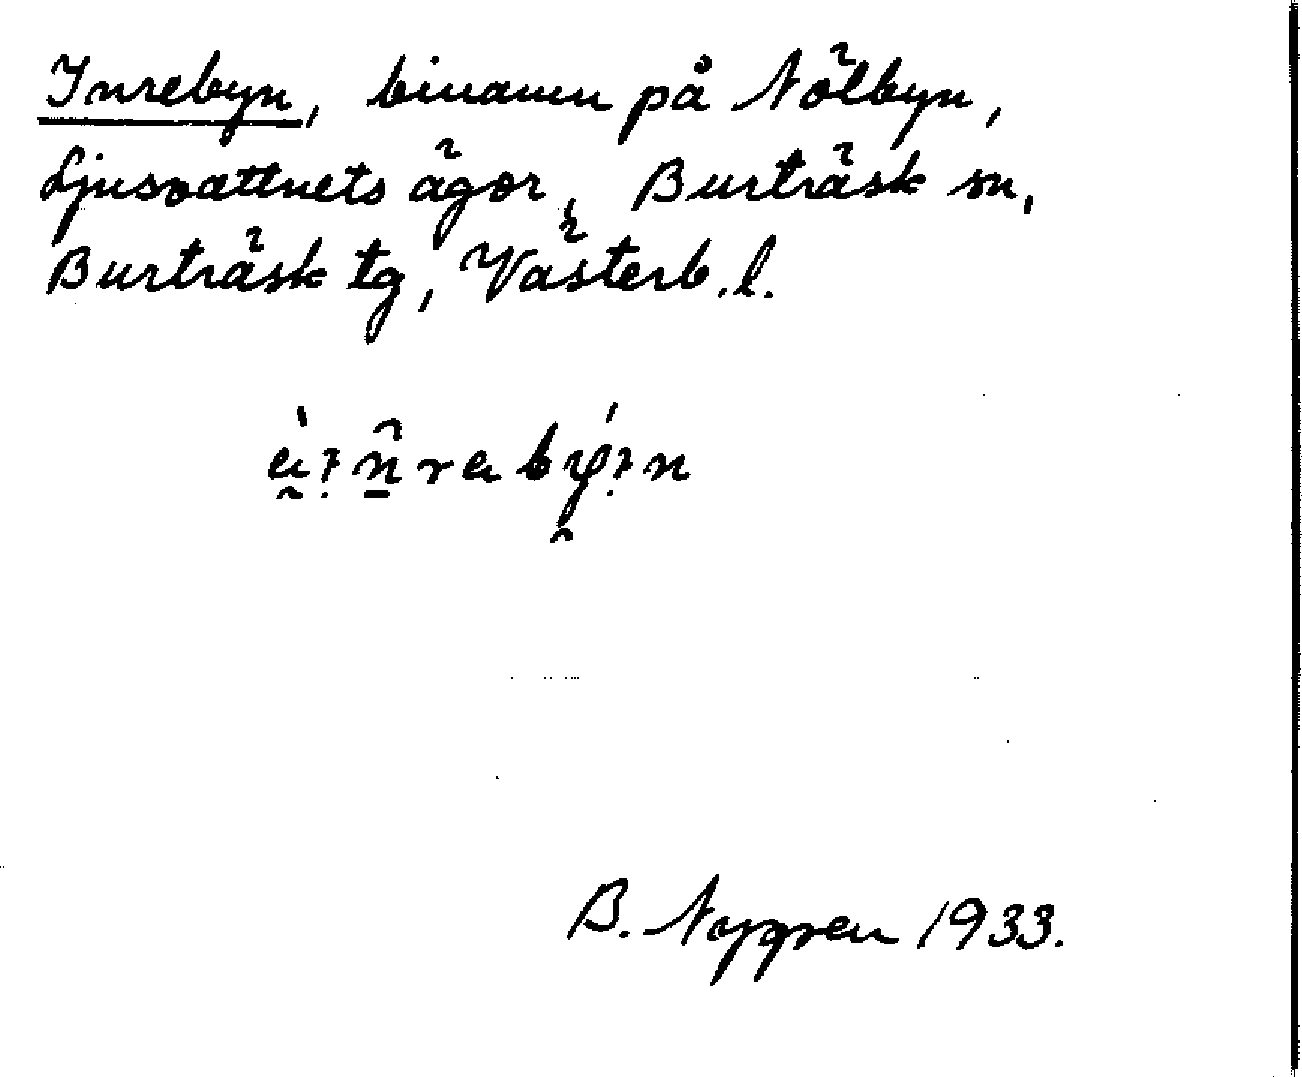 Inrebyn, binamn på Nölbyn,
Ljusvattnets ägor, Burträsk sn,
Burträsk tg, Västerb. l.
B. Nygren 1933.